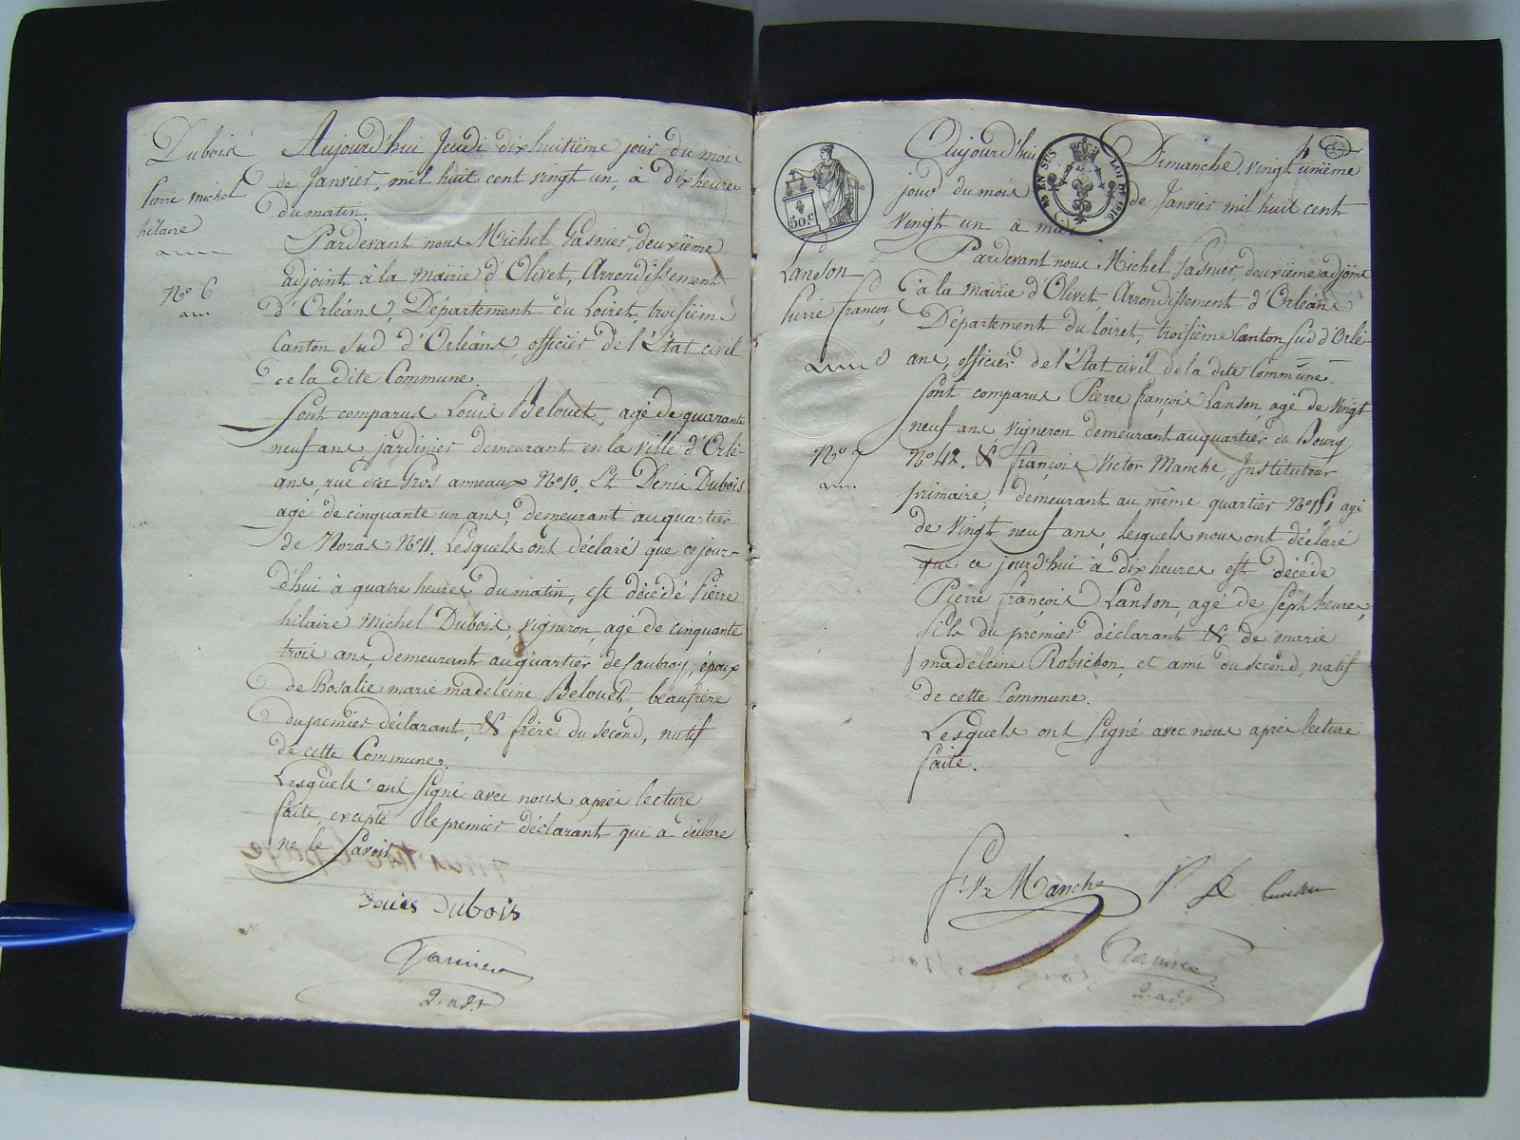 Dubois
Pierre Michel
hilaire
N° 6
Aujourd'hui Jeudi dixhuitième jour du mois
de Janvier, mil huit cent vingt un, à Dix heures
du matin.
Pardevant nous Michel Gasnier, deuxième
adjoint à la mairie d'Olivet, Arrondissement
d'Orléans, Département du Loiret, troisième
Canton Sud d'Orléans, officier de l'Etat civil
de la dite Commune.
Sont comparus Louis Belouet, agé de quarante
neuf ans jardinier demeurant en la ville d'Orlé-
ans, rue des Gros anneaux N° 10. Et Denis Dubois
agé de cinquante un ans, demeurant au quartier
de Noras N° 11. Lesquels ont déclaré que ce jour-
d'hui à quatre heures du matin, est décédé Pierre
hilaire Michel Dubois, vigneron, agé de cinquante
trois ans, demeurant au quartier de Caubray, époux
de Rosalie marie madeleine Belouet, beaufrère
du premier déclarant, & frère du second, natif
de cette Commune.
Lesquels ont signé avec nous après lecture
faite, excepté le premier déclarant qui a déclaré
ne le savoir
Denis Dubois
Gasnier
2. adjt
4
50 c
EN SUS
LOI DE 1816
Lanson
Pierre françois
N° 7
Aujourd'hui Dimanche, vingt unième
jour du mois de Janvier mil huit cent
vingt un à midi
Pardevant nous Michel Gasnier, deuxième adjoint
à la mairie d'Olivet Arrondissement d'Orléans
Département du Loiret, troisième Canton Sud d'Orlé-
ans, officier de l'Etat civil de la dite Commune.
Sont comparus Pierre françois Lanson, agé de vingt
neuf ans, vigneron demeurant au quartier du Bourg
N° 42. & françois Victor Manche, Instituteur
primaire, demeurant au même quartier N° agé
de vingt neuf ans, Lesquels nous ont déclaré
que ce jourd'hui à dix heures est décédé
Pierre françois Lanson, agé de sept heures,
fils du premier déclarant & de marie
madeleine Robichon, et ami du second, natif
de cette Commune.
Lesquels ont signé avec nous après lecture
faite.
F. V. Manche
Gasnier
2. adjt